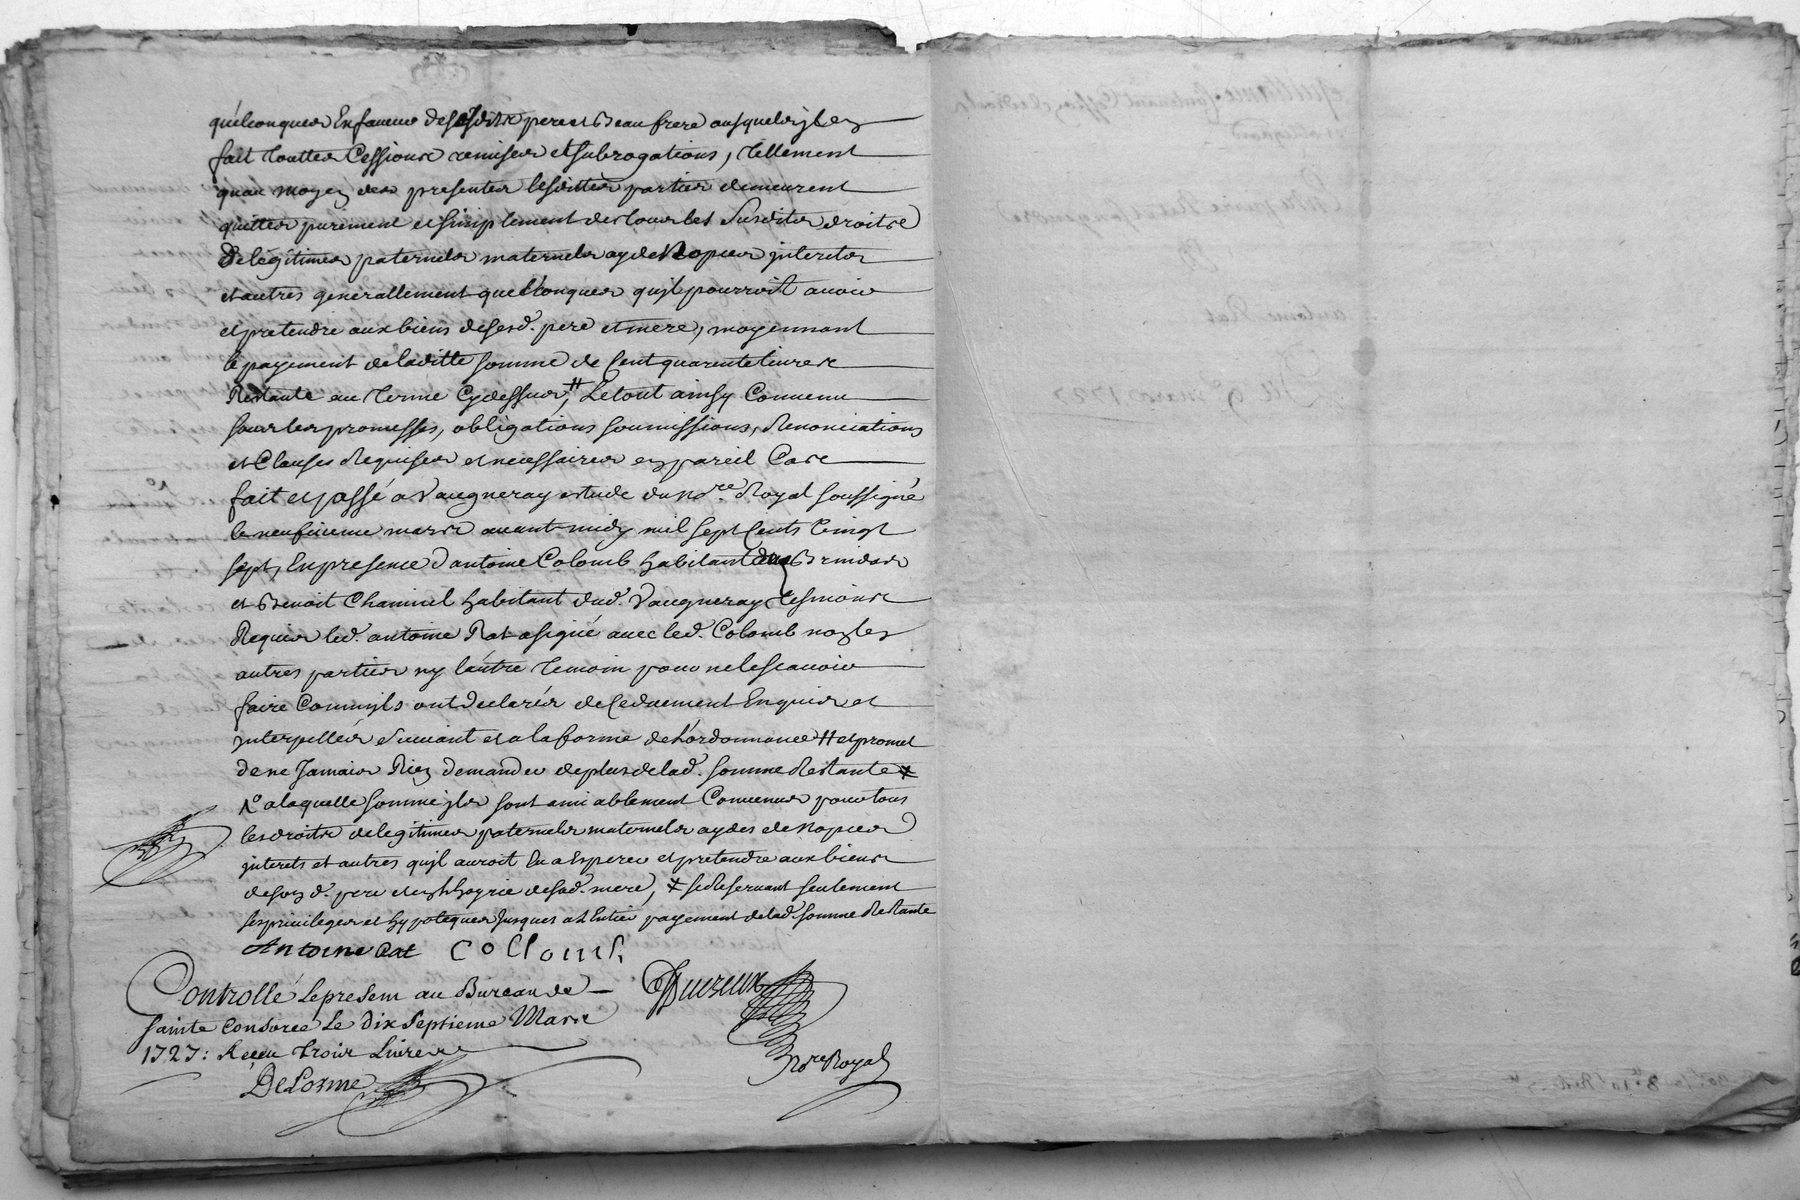 quelconques En faveur desesdits pere et Beau frere ausquels il en
fait touttes Cessions remises et subrogations, Tellement
quau moyen des presentes lesdittes parties demeurent
quittes purement et simplement de tous les susdits droits
De légitimes paternels maternels aydes Nopces interets
et autres generallement quelconques quil pourroit avoir
et pretendre aux biens desesd. pere et mere, moyennant
le payement de laditte somme de Cent quarente livres
Restante au Terme Cydessus, # Le tout ainsy Convenu
sous les promesses, obligations soumissions, Renonciations
et Clauses Requises et necessaires en pareil Cas
fait et passé a Vaugneray estude du No.re Royal soussigné
le neufvieme mars avant midy mil sept Cents vingt
sept, En presence d'antoine Colomb habitant de Brindas
et Benoit Chaminel habitant dud. Vaugneray Tesmoins
Requis led. antoine Rat a signé avec led. Colomb non les
autres parties ny lautre Temoin pour ne le scavoir
faire Comm'ils ont declarés de Ce duement Enquis et
interpellés suivant et a la forme de L'ordonnance # et promet
de ne Jamais Rien demander de plus de lad. somme Restante ×
a laquelle somme ils sont amiablement Convenus pour tous
les droits de legitimes paternels maternels aydes de Nopces
interets et autres quil auroit Eu a Esperer et pretendre aux biens
de son d. pere et en hoyrie de sad. mere, × se Reservant seulement
ses privileges et hypoteques Jusques a L'Entier payement de lad. somme Restante
Antoine Rat Collomb
Controllé Le present au Bureau de
Sainte Consorce Le dix septieme Mars
1727: Receu trois Livres
No.re Royal
DeLorme
antoine Rat
mars 1727